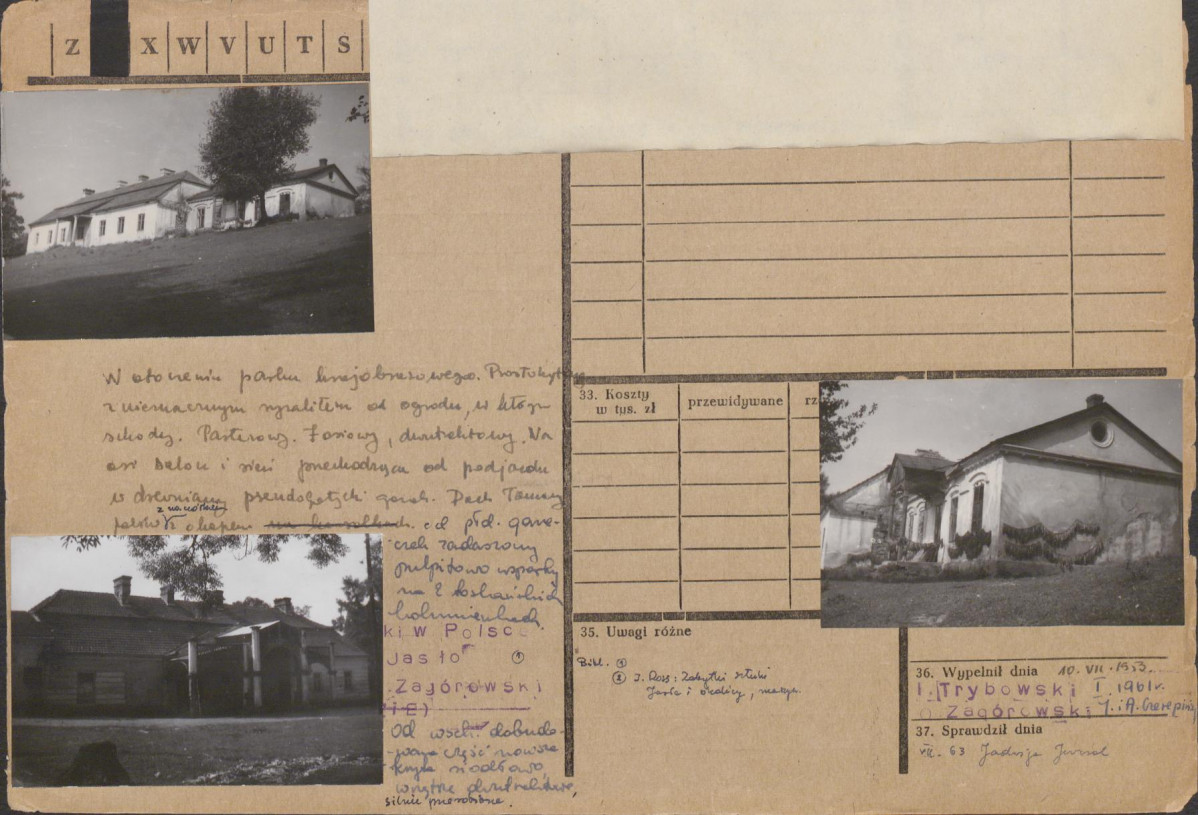 Z X W V U T S
W otoczeniu parku krajobrazowego. Prostokątny
z nieznacznym ryzalitem od ogrodu, w którym
schody. Parterowy. Dwutraktowy. Na
osi salon i sień przechodząca od podjazdu
w drewniany pseudogotycki ganek. Dach łamany
polski z okapem na konsolkach. od płd. gane-
-czek zadaszony
pulpitowo wsparty
na 2 toskańskich
kolumienkach.
ki w Polsce
Jasło ①
. Zagórowski
Od wsch. dobudo-
-wana część nowsza
kryta siodłowo
wnętrze dwutraktowe,
silnie przerobione.
33. Koszty
w tys. zł
przewidywane
rz
35. Uwagi różne
Bibl. ①
② J. Ross: Zabytki sztuki
Jasła i okolicy, maszyn.
36. Wypełnił dnia 10. VII. 1953.
I. Trybowski I. 1961 r.
O Zagórowski J. i A. Czerepiński
37. Sprawdził dnia
VII. 63 Jadwiga